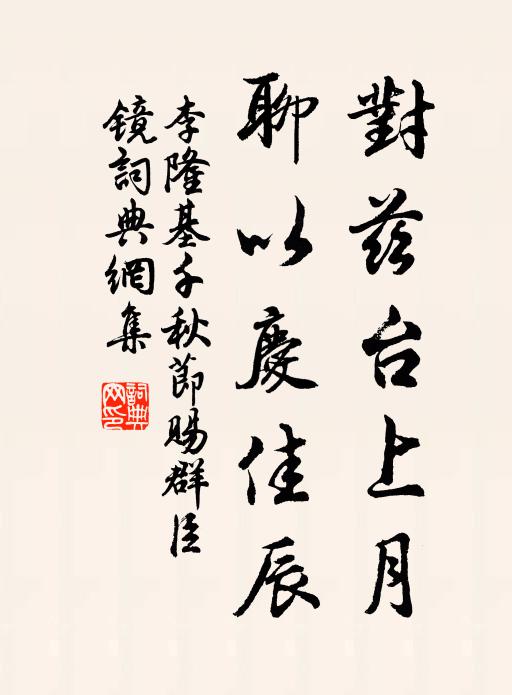 對茲台上月
聊以慶佳辰
李隆基千秋節賜群臣
鏡詞典網集
詞典網印